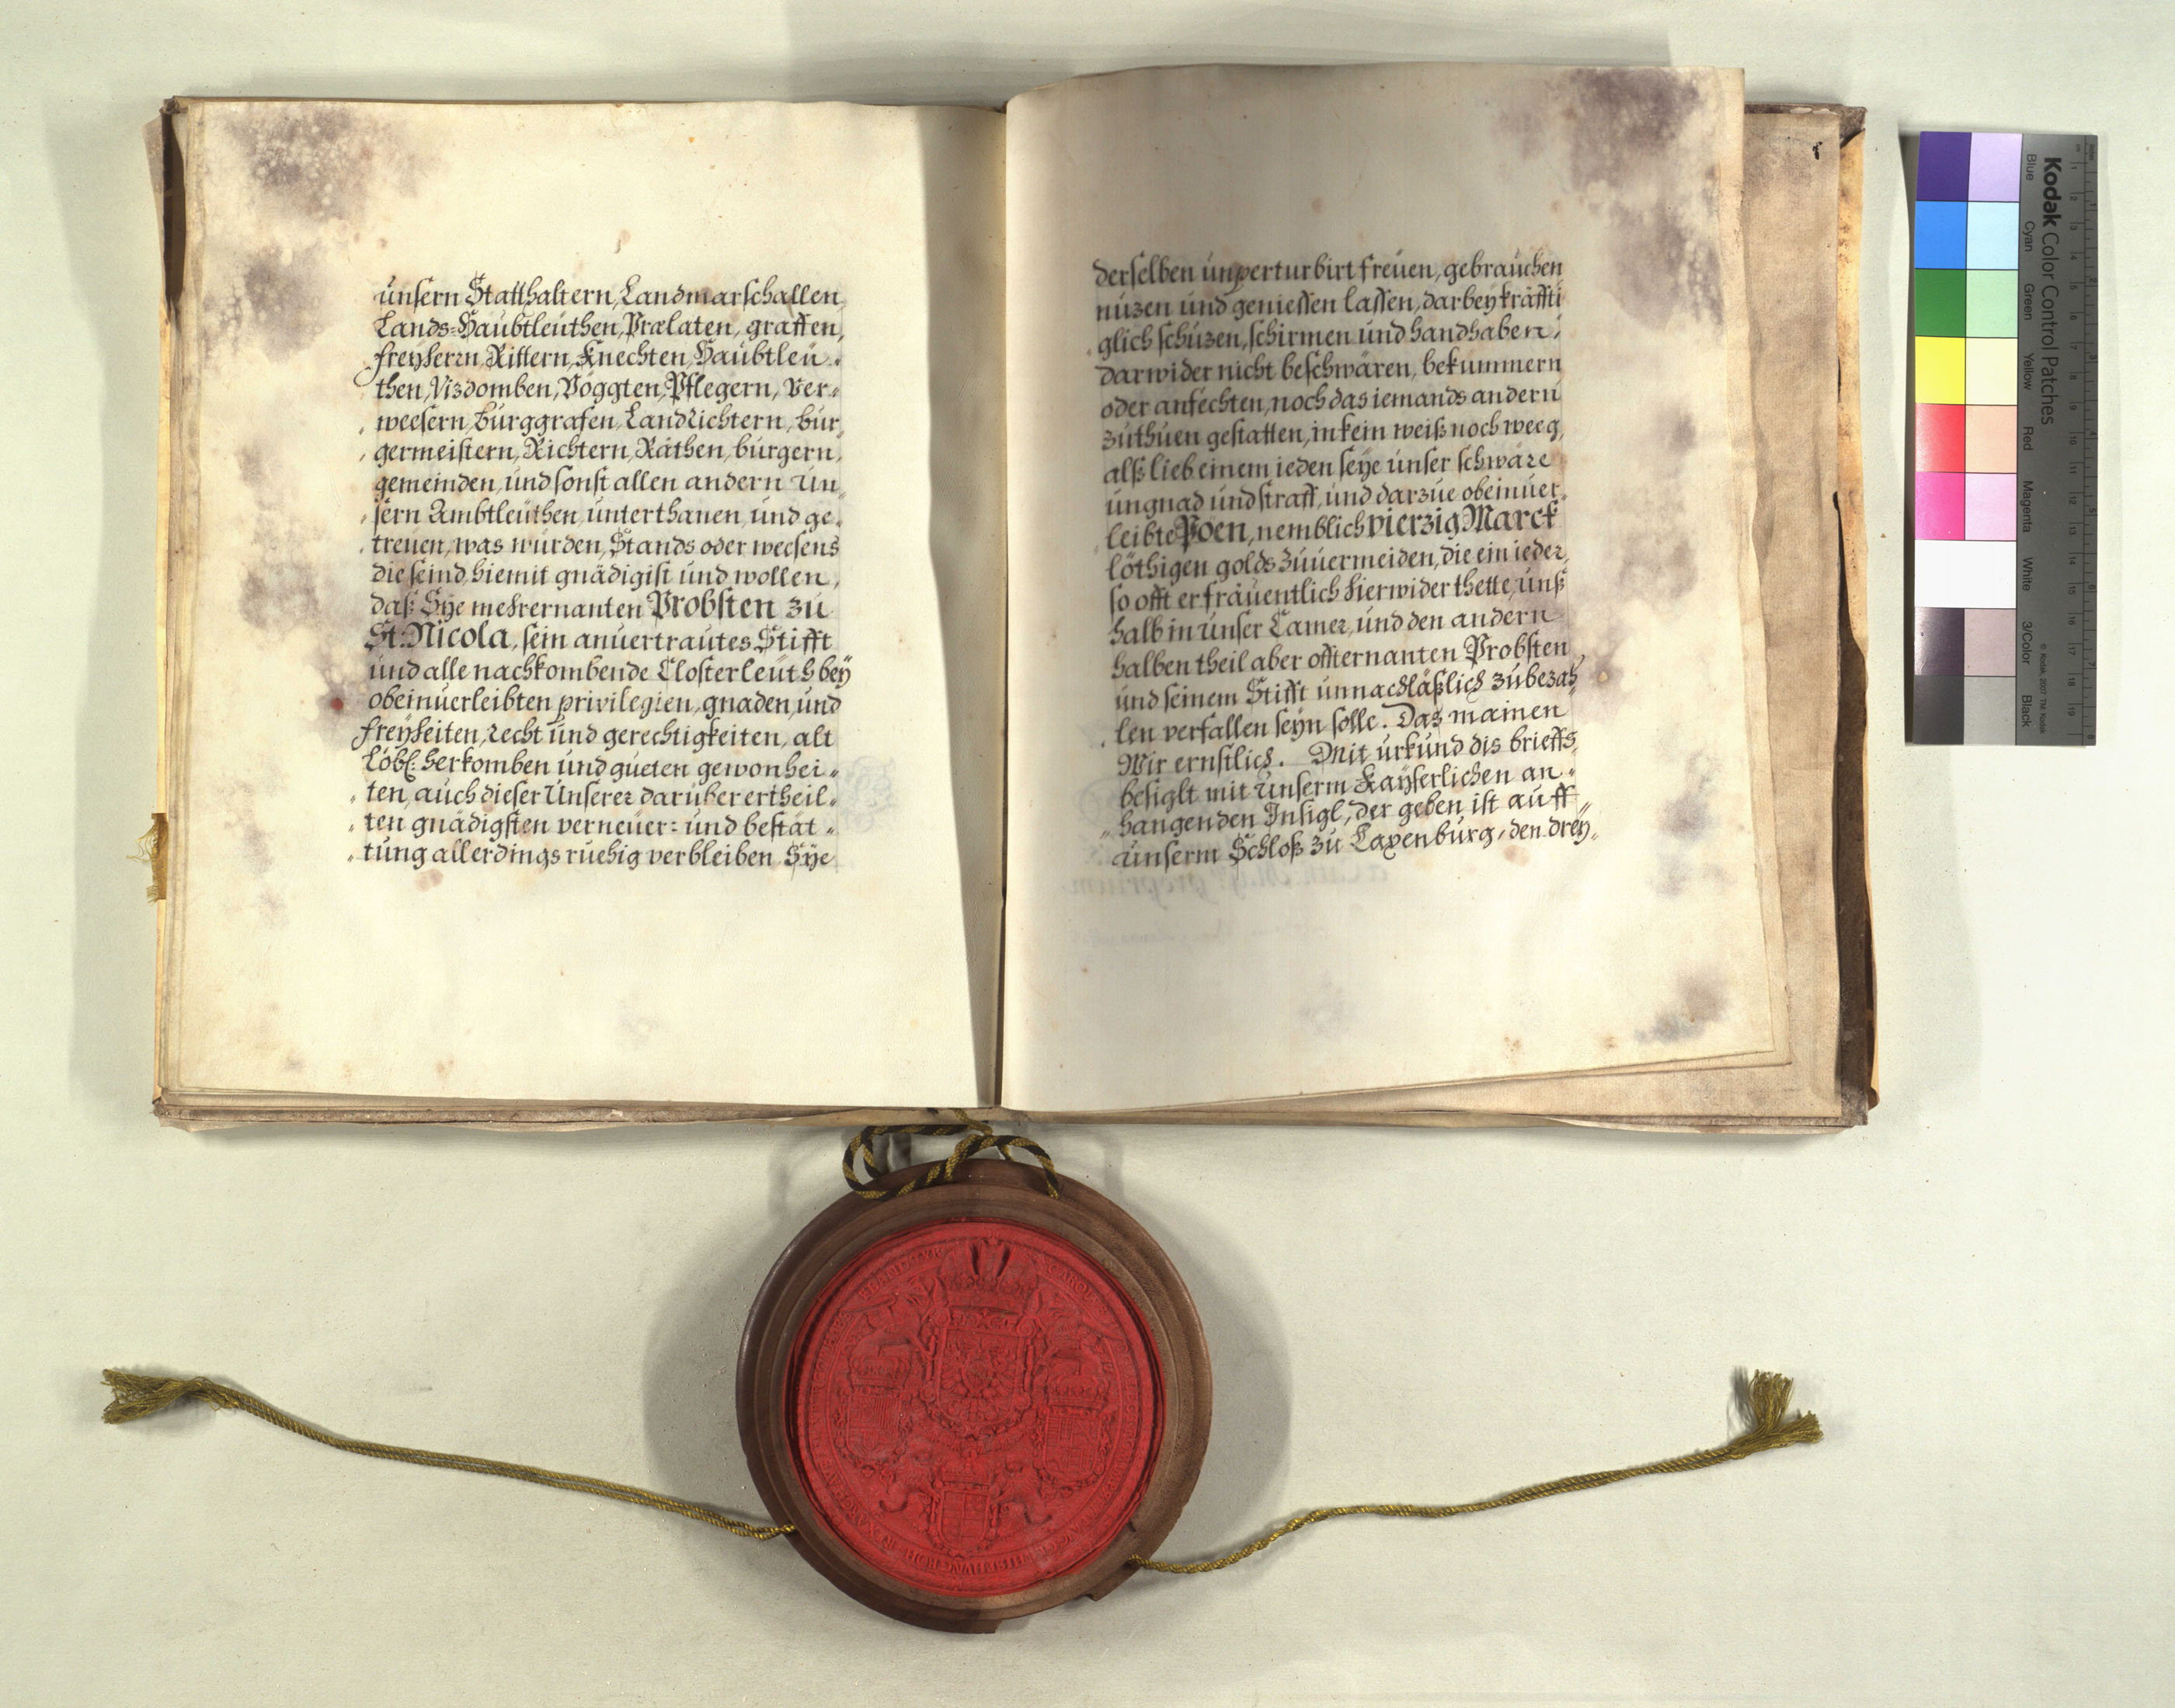 unsern Statthaltern, Landmarschallen,
Lands=Haubtleüthen, Prælaten, graffen,
freyherrn, Rittern, Knechten, Haubtleü-
then, Vizdomben, Vöggten, Pflegern, Ver-
weesern, burggrafen, Landrichtern, bur-
germeistern, Richtern, Räthen, burgern,
gemeinden, und sonst allen andern Un-
sern Ambtleüthen, unterthanen, und ge-
treuen, was würden, Stands oder weesens
die seind, hiemit gnädigist und wollen,
daß Sye mehrernanten Probsten zu
St: Nicola, sein anvertrautes Stifft
und alle nachkombende Closterleüth bey
obeinverleibten privilegien, gnaden, und
freyheiten, recht und gerechtigkeiten, alt
löbl: herkomben und gueten gewonhei-
ten, auch dieser Unserer darüber ertheil-
ten gnädigsten verneuer= und bestät-
tung allerdings ruehig verbleiben Sye
derselben unperturbirt freuen, gebrauchen
nuzen und geniessen lassen, darbey kräffti
glich schüzen, schirmen und handhaben,
darwider nicht beschwären, bekummern
oder anfechten, noch das iemands andern
zuthuen gestatten, in kein weiß noch weeg,
alß lieb einem ieden seye unser schwäre
ungnad und straff, und darzue obeinver-
leibte Pöen, nemblich vierzig Marck
löthigen golds zuvermeiden, die ein ieder,
so offt er fräventlich hierwider thette, unß
halb in unser Camer, und den andern
halben theil aber offternanten Probsten
und seinem Stifft unnachläßlich zubezah-
len verfallen seyn solle. Das mainen
Wir ernstlich. Mit urkund dis brieffs,
besiglt mit unserm Kayserlichen an-
hangenden Insigl, der geben ist auff
unserm Schloß zu Laxenburg, den drey-
Kodak Color Control Patches
Blue Cyan Green Yellow Red Magenta White 3/Color Black
© Kodak, 2007 TM: Kodak